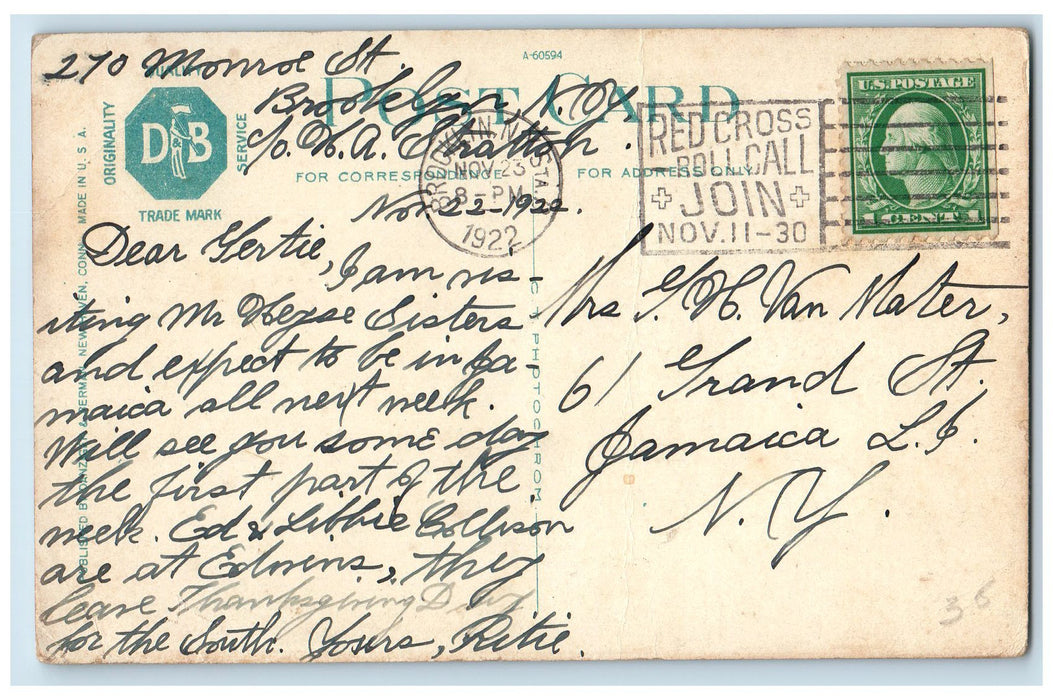 A-60594
270 Monroe St.
Brooklyn N.Y.
c/o. W. A. Stratton.
POST CARD
QUALITY
ORIGINALITY
SERVICE
D&B
TRADE MARK
FOR CORRESPONDENCE
FOR ADDRESS ONLY
BROOKLYN, N.Y. STA.
NOV 23
8-PM
1922
RED CROSS
ROLL CALL
JOIN
NOV. 11-30
U.S. POSTAGE
1 CENT 1
Nov. 22-1922.
Dear Gertie, I am vis-
iting Mr Weyse Sisters
and expect to be in Ja-
maica all next week.
Will see you some day
the first part of the
week. Ed & Libbie Collison
are at Edwens, they
leave Thanksgiving Day
for the South. Yours, Retie.
Mrs G. H. Van Mater,
61 Grand St.
Jamaica L.I.
N.Y.
PUBLISHED BY DANZIGER & BERMAN, NEW HAVEN, CONN. MADE IN U.S.A.
PHOTOCHROM
36